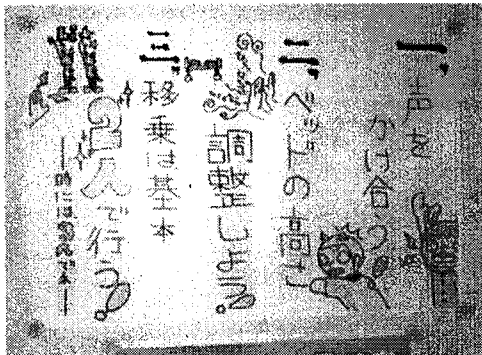 一、声を
かけ合う
二、ベッドの高さ
調整しよう。
三、移乗は基本
2人で行う。
時には